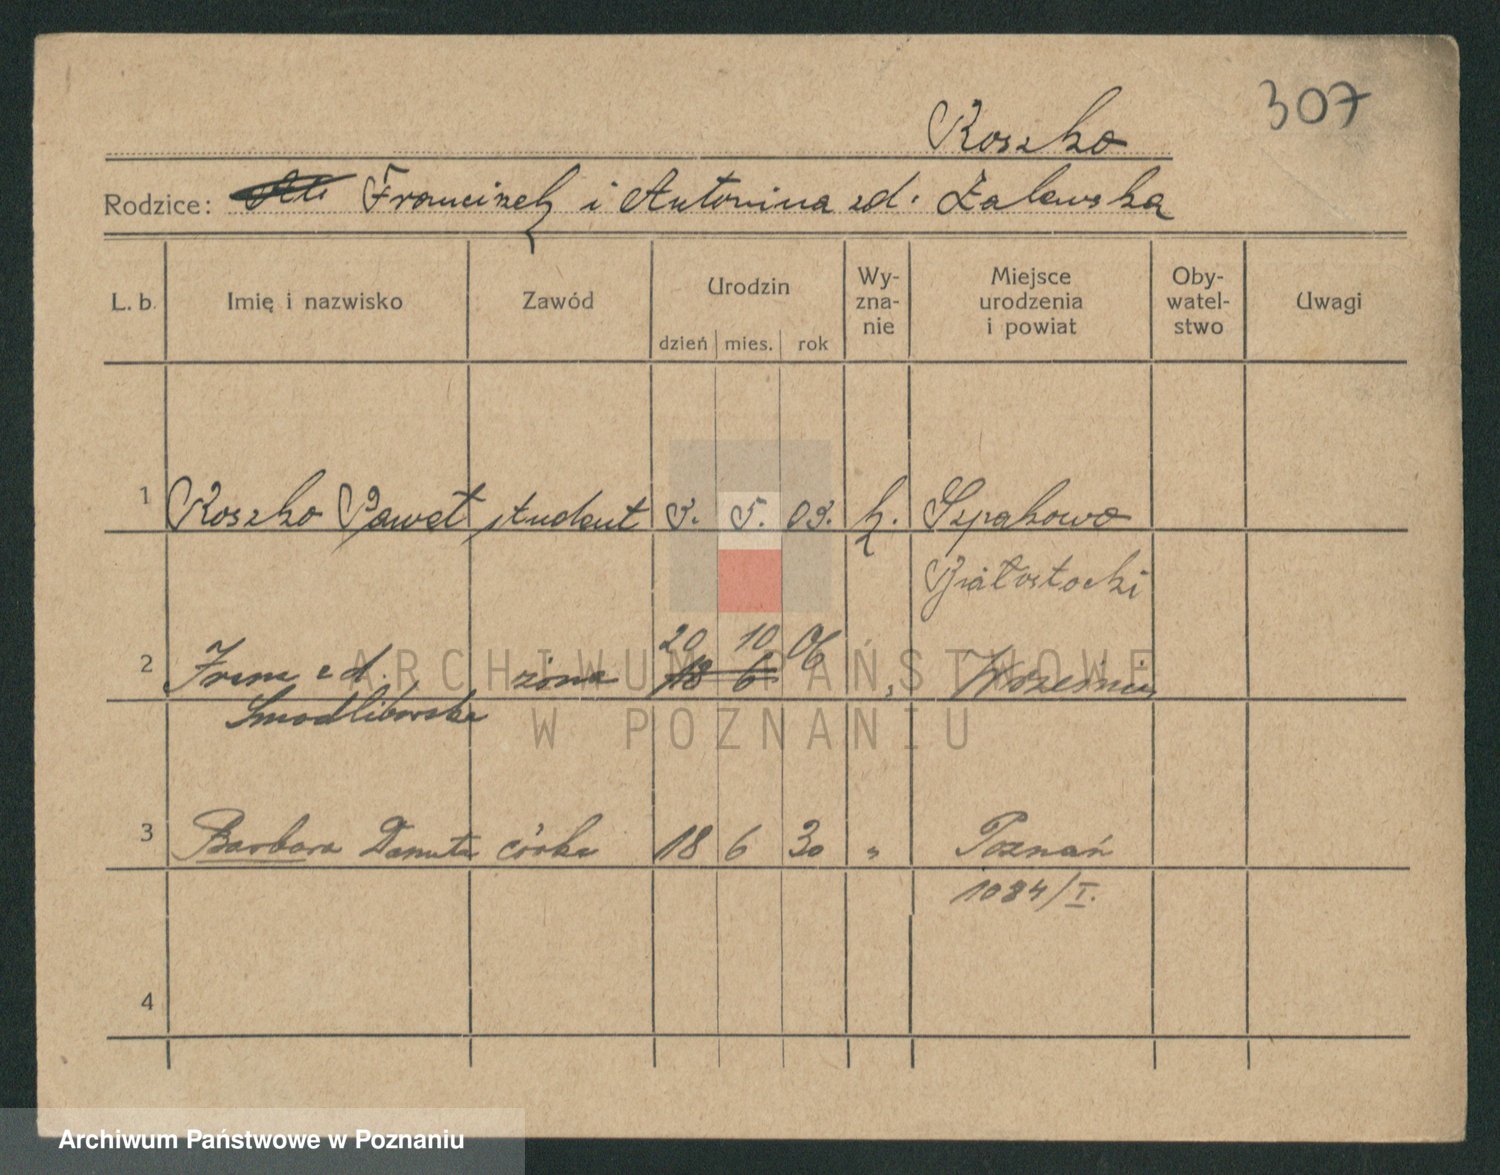 307
Koszko
Rodzice: Franciszek i Antonina zd. Zalewska
L. b. Imię i nazwisko Zawód Urodzin Wy-zna-nie Miejsce urodzenia i powiat Oby-watel-stwo Uwagi
dzień mies. rok
1 Koszko Paweł student 5. 5. 03. k. Szpakowo
Białostocki
20 10 06
2 Irena zd. żona 18 6 " Września
Smodlibowska
ARCHIWUM PAŃSTWOWE
W POZNANIU
3 Barbara Danuta córka 18 6 30 " Poznań
1084/I.
4
Archiwum Państwowe w Poznaniu